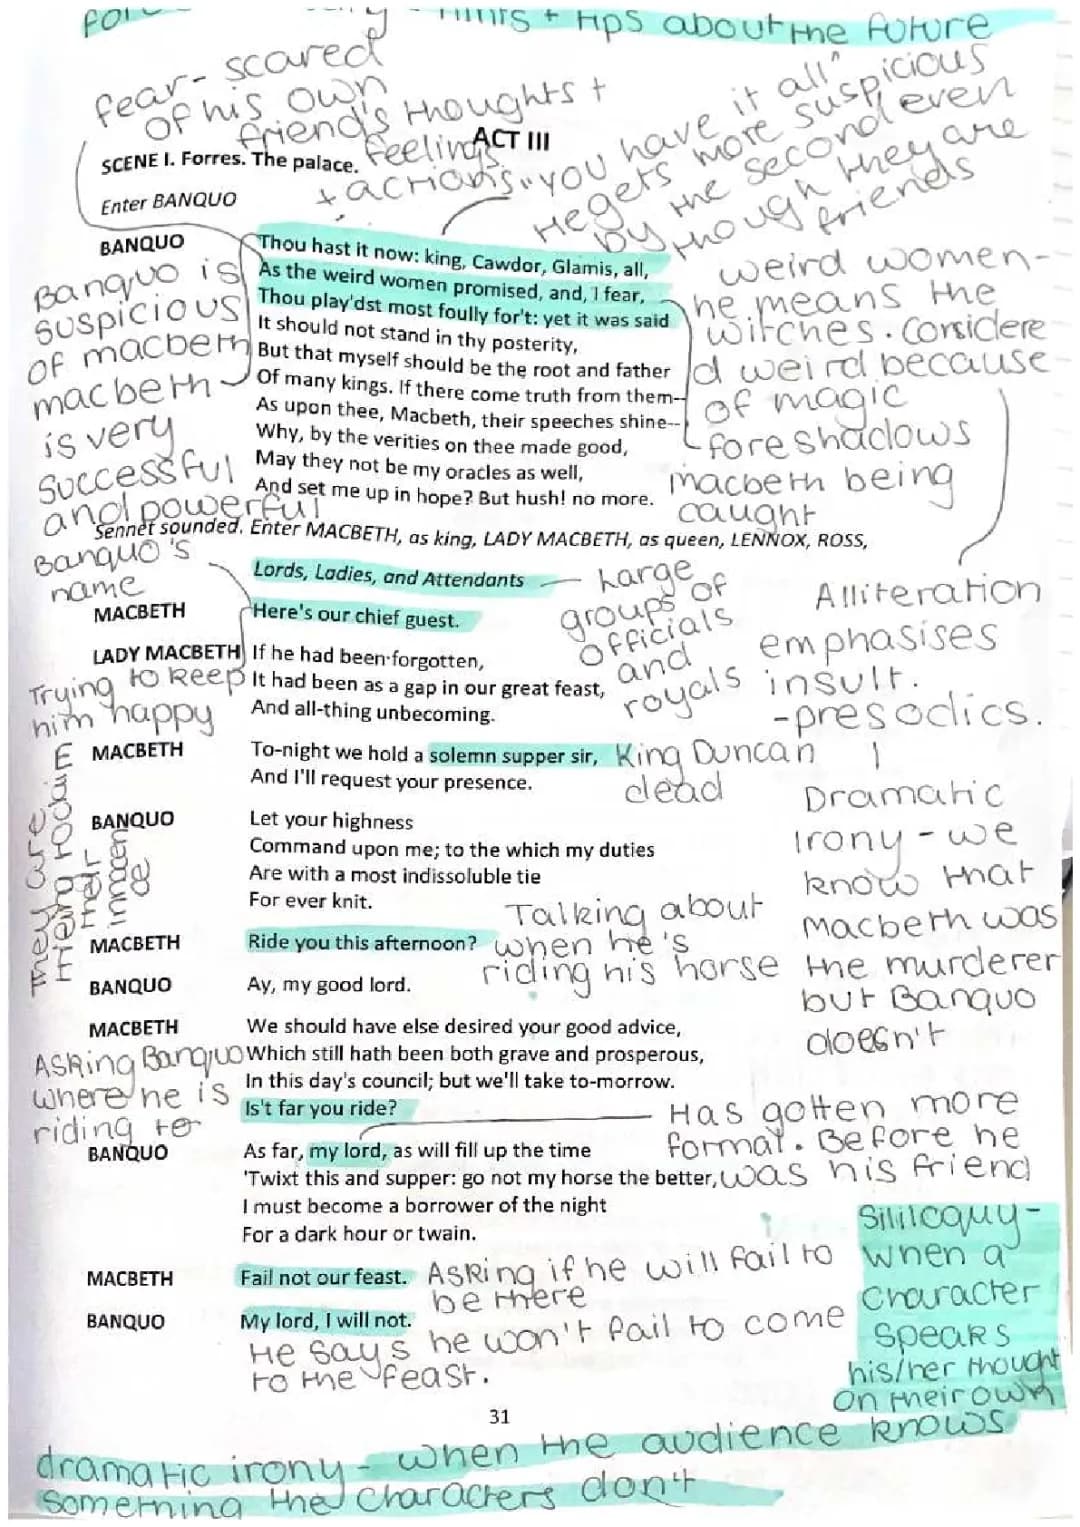 hints + tips about the future
fear- scared
of his own
friend's thoughts +
feelings
+ actions
"you have it all"
He gets more suspicious
by the second even
though they are
friends
ACT III
SCENE I. Forres. The palace.
Enter BANQUO
BANQUO
Thou hast it now: king, Cawdor, Glamis, all,
As the weird women promised, and, I fear,
Thou play'dst most foully for't: yet it was said
It should not stand in thy posterity,
But that myself should be the root and father
Of many kings. If there come truth from them--
As upon thee, Macbeth, their speeches shine--
Why, by the verities on thee made good,
May they not be my oracles as well,
And set me up in hope? But hush! no more.
Banquo is
suspicious
of macbeth
macbeth
is very
successful
and powerful
weird women-
he means the
witches. Considere
d weird because
of magic
foreshadows
macbeth being
caught
Sennet sounded. Enter MACBETH, as king, LADY MACBETH, as queen, LENNOX, ROSS,
Lords, Ladies, and Attendants
Large
groups of
officials
and
royals
Alliteration
emphasises
insult.
-presodics.
Banquo's
name
MACBETH
Here's our chief guest.
LADY MACBETH
If he had been forgotten,
It had been as a gap in our great feast,
And all-thing unbecoming.
Trying to keep
him happy
MACBETH
To-night we hold a solemn supper sir,
And I'll request your presence.
King Duncan
dead
BANQUO
Let your highness
Command upon me; to the which my duties
Are with a most indissoluble tie
For ever knit.
They are
their
Dramatic
Irony - we
know that
macbeth was
the murderer
but Banquo
doesn't
MACBETH
Ride you this afternoon?
Talking about
when he's
riding his horse
BANQUO
Ay, my good lord.
MACBETH
We should have else desired your good advice,
Which still hath been both grave and prosperous,
In this day's council; but we'll take to-morrow.
Is't far you ride?
Asking Banquo
where he is
riding to
Has gotten more
format. Before he
was his friend
BANQUO
As far, my lord, as will fill up the time
'Twixt this and supper: go not my horse the better,
I must become a borrower of the night
For a dark hour or twain.
MACBETH
Fail not our feast.
Asking if he will fail to
be there
BANQUO
My lord, I will not.
He says he won't fail to come
to the feast.
Sililoquy-
when a
character
speaks
his/her thought
on their own
31
dramatic irony - when the audience knows
something the characters don't